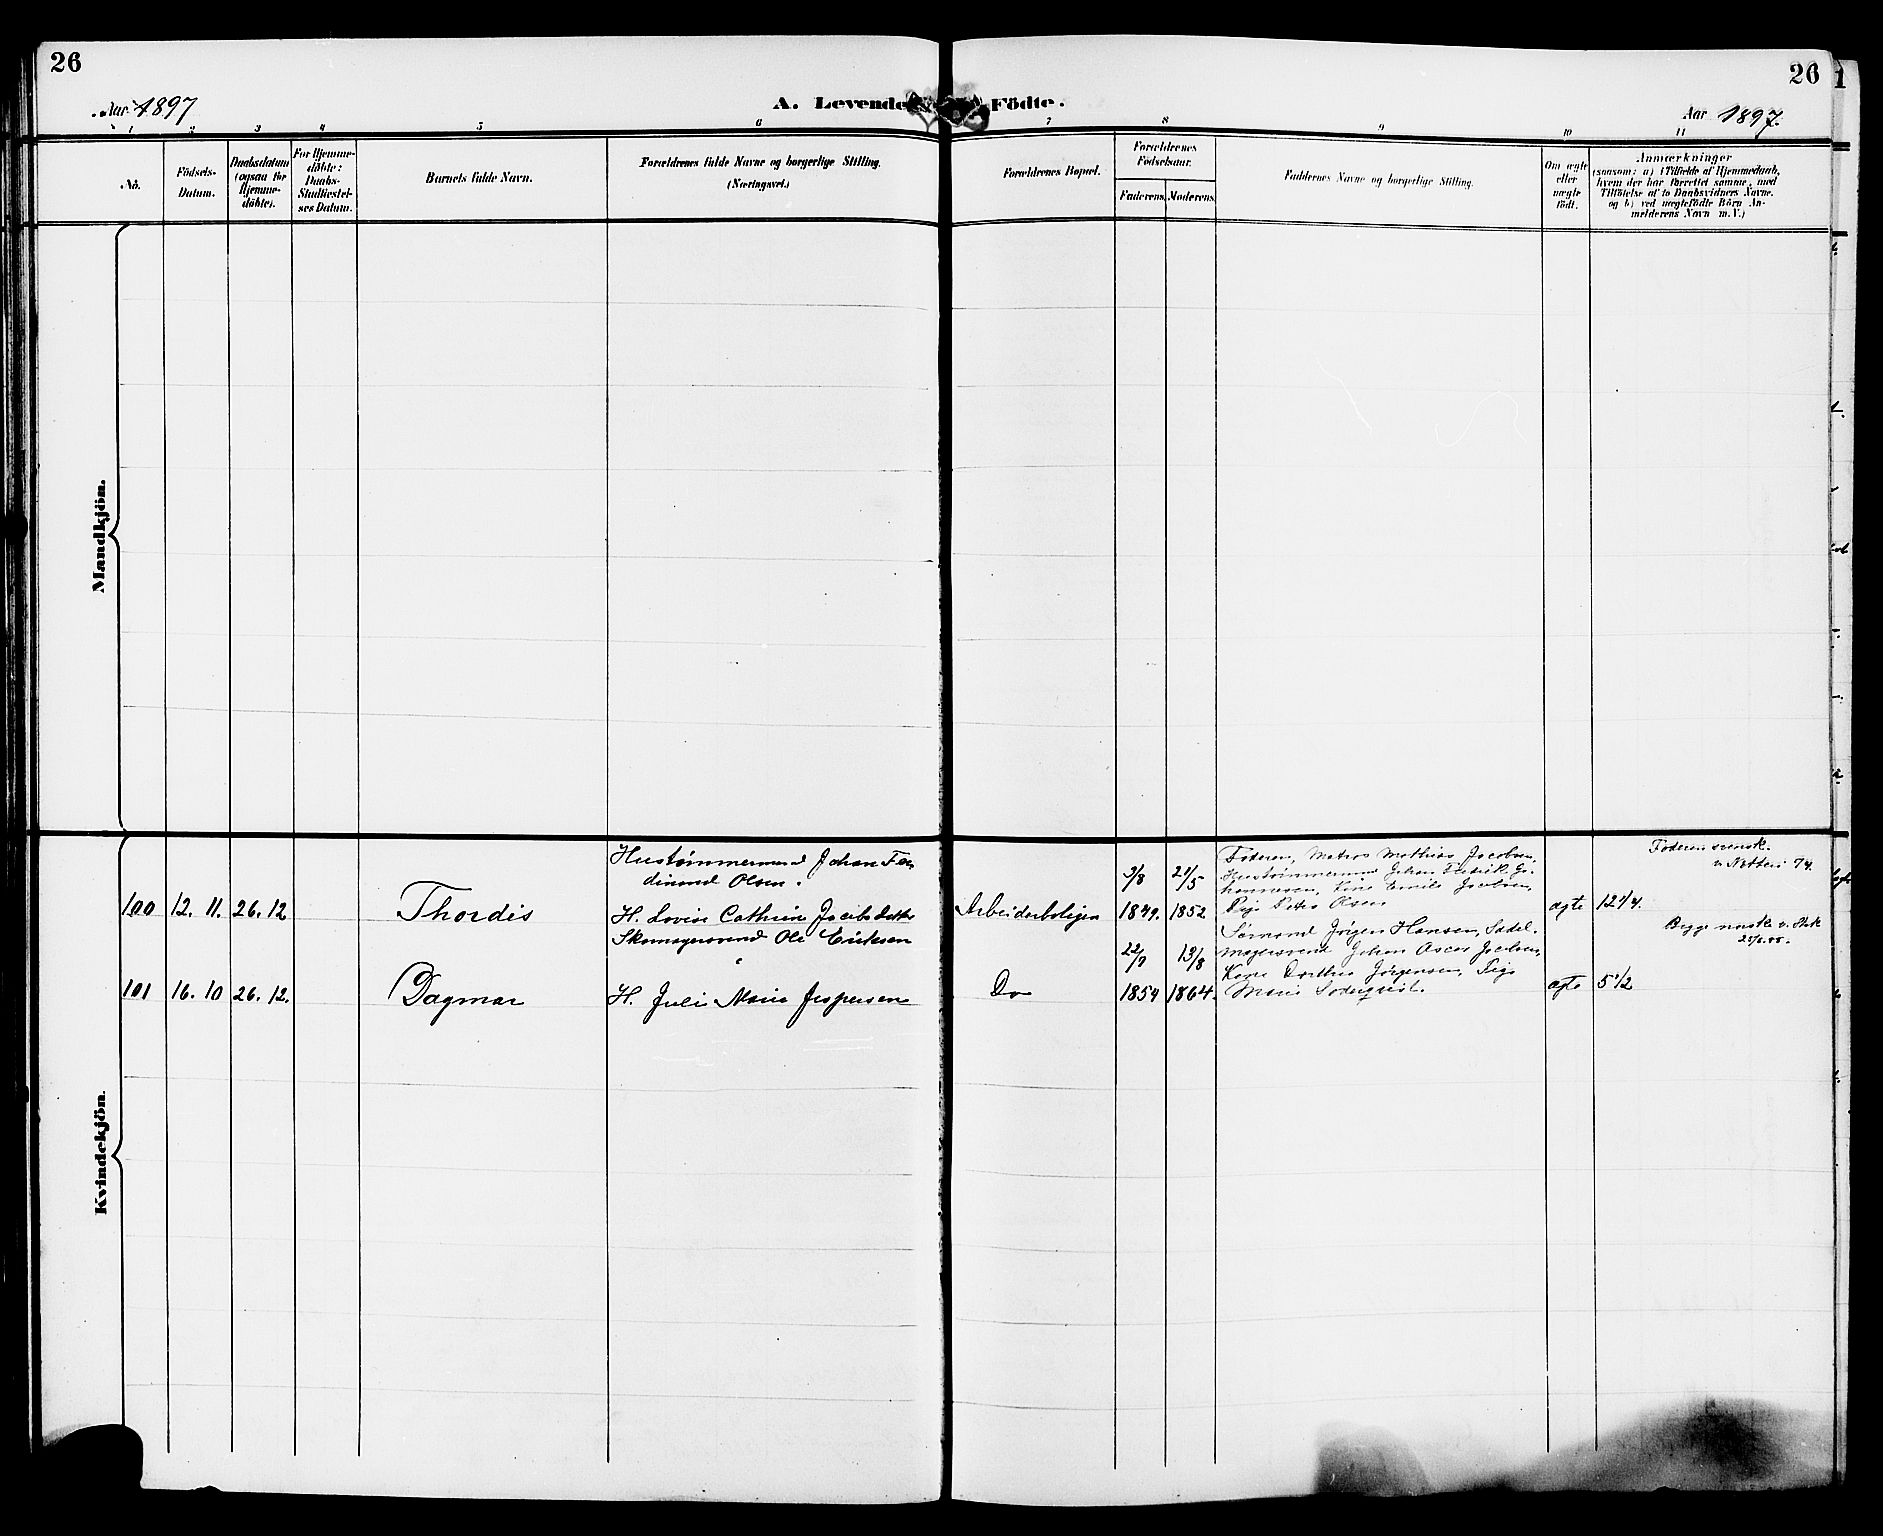 26
Aar 1897
A. Levende Födte.
26
Aar 1897.
1 2 3 4 5 6 7 8 9 10 11
No.
Födsels-
Datum.
Daabsdatum
(ogsaa for
Hjemme-
döbte).
For Hjemme-
döbte:
Daabs-
Stadfæstel-
ses Datum.
Barnets fulde Navn.
Forældrenes fulde Navne og borgerlige Stilling.
(Næringsvei.)
Forældrenes Bopæl.
Forældrenes
Födselsaar.
Faderens. Moderens.
Faddernes Navne og borgerlige Stilling.
Om ægte
eller
uægte
födt.
Anmærkninger
(saasom: a) i Tilfælde af Hjemmedaab,
hvem der har forrettet samme, med
Tilföielse af to Daabsvidners Navne.
og b) ved uægtefödte Börn An-
melderens Navn m. V.)
Mandkjön.
Kvindekjön.
100 12. 11. 26. 12
Thordis
Hustømmermand Johan Fer-
dinand Olsen.
H. Lovise Cathrine Jacobsdatter
Arbeiderboligen
3/8
1849.
21/5
1852
Faderen, Matros Mathias Jacobsen,
Hustømmermand Johan Fredrik Jo-
hannesen, Kone Emilie Jacobsen,
Pige Petra Olsen
ægte
12 1/4.
Faderen svensk.
101 16. 10 26. 12.
Dagmar
Skomagersvend Ole Eriksen
H. Juli Marie Jespersen
Do
1854
13/8
1864.
Sømand Jørgen Hansen, Sadel-
magersvend Johan Oscar Jacobsen,
Kone Dorthea Jørgensen, Pige
Marie Soderqvist.
ægte
5 1/2
Begge norsk